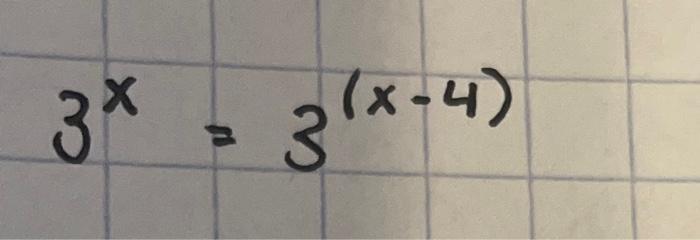 3^x = 3^(x-4)